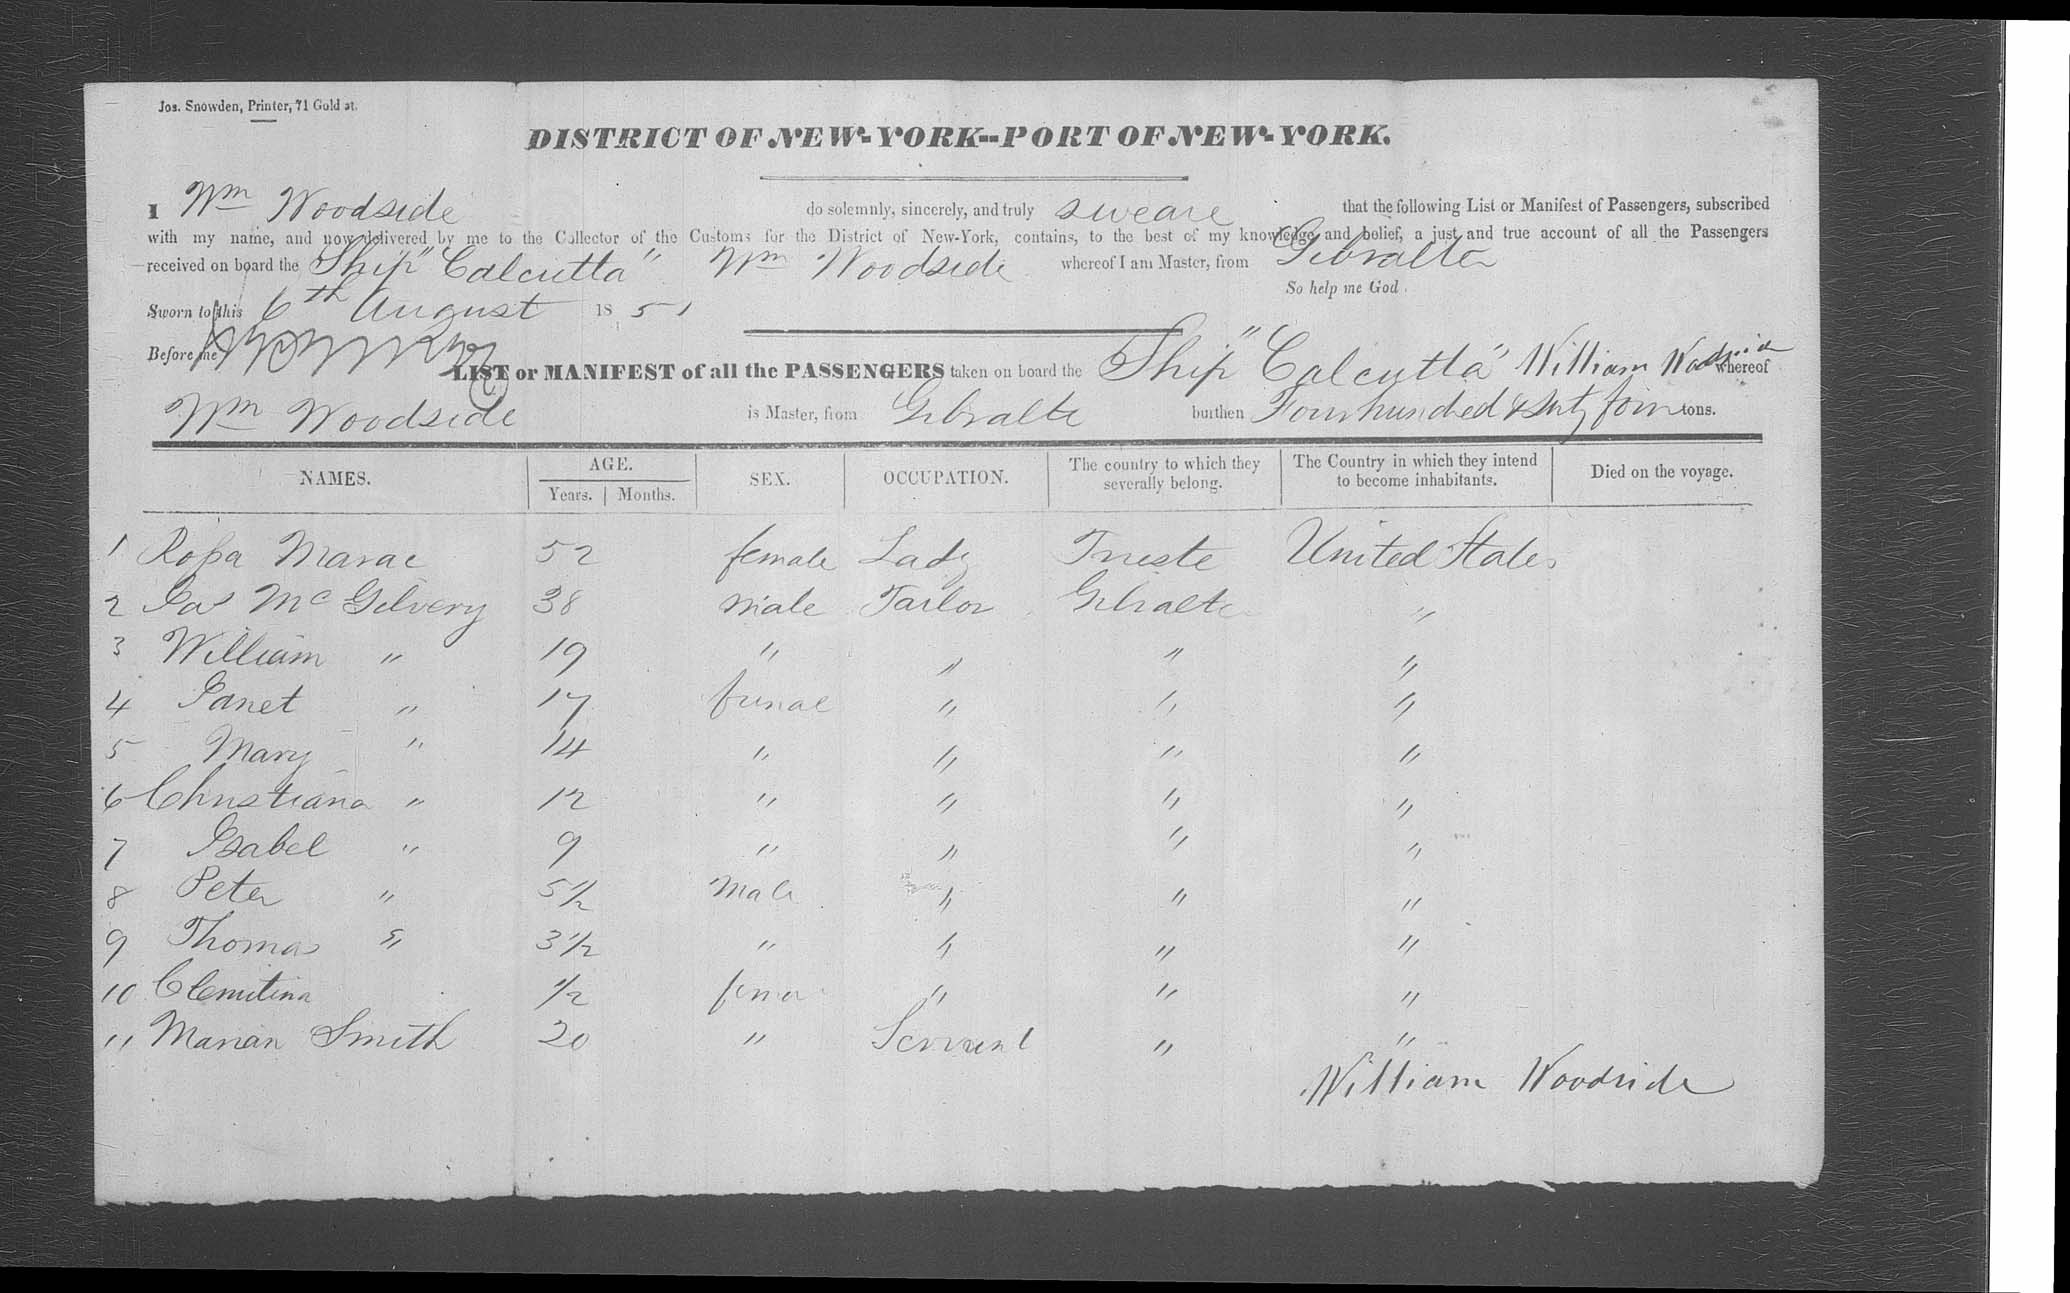 Jos. Snowden, Printer, 71 Gold st.
DISTRICT OF NEW-YORK--PORT OF NEW-YORK.
I Wm Woodside do solemnly, sincerely, and truly sweare that the following List or Manifest of Passengers, subscribed
with my name, and now delivered by me to the Collector of the Customs for the District of New-York, contains, to the best of my knowledge and belief, a just and true account of all the Passengers
received on board the Ship "Calcutta" Wm Woodside whereof I am Master, from Gibralter
So help me God.
Sworn to this 6th August 1851
Before me
LIST or MANIFEST of all the PASSENGERS taken on board the Ship "Calcutta" William Woodside whereof
Wm Woodside is Master, from Gibralte burthen Four hundred & sixty four tons.
NAMES. AGE. SEX. OCCUPATION. The country to which they severally belong. The Country in which they intend to become inhabitants. Died on the voyage.
Years. Months.
1 Rosa Marac 52 female Lady Trieste United States
2 Jas McGilvery 38 male Tailor Gibralte "
3 William " 19 " " " "
4 Janet " 17 femal " " "
5 Mary " 14 " " " "
6 Christiana " 12 " " " "
7 Isabel " 9 " " " "
8 Peter " 5 1/2 Male " " "
9 Thomas " 3 1/2 " " " "
10 Clemitina 1/2 fema " " "
11 Marian Smith 20 " Servant " "
William Woodside